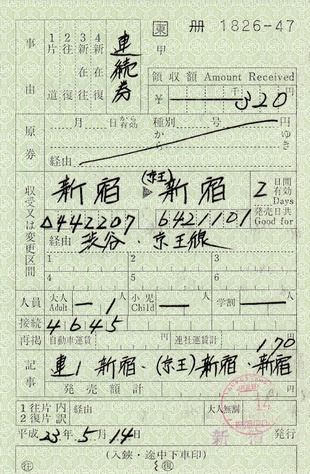 東 冊 1826-47
甲
事由
1片道
2往復
3新在
4新在往復
連続券
領収額 Amount Received
千 円
¥ 320
原券
月 日から有効 種別 号 円
から ゆき
経由
収受又は変更区間
新宿 (京王) ▶ 新宿
2 日間有効 Days
△442207 6421101
発売日共 Good for
経由 渋谷・京王線
1 2 3
4 5 6
人員 大人 Adult 一 1人 小児 Child 一 人 学割 一 人
接続 4645
再掲 自動車運賃 円 連社運賃計 170 円
記事 連1 新宿・(京王)新宿・新宿
発売額計
1往片 内
2復片 訳
経由 大人無割 発行
平成 23年 5月 14日 新宿 発行
(入鋏・途中下車印)